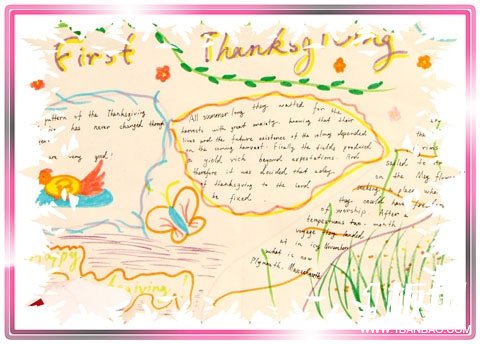 First Thanksgiving
pattern of the Thanksgiving
has never changed through
are very good!
All summer long they waited for the
harvests with great anxiety, knowing that their
lives and the future existence of the colony depended
on the coming harvest. Finally the fields produced
a yield rich beyond expectations. And
therefore it was decided that a day
of thanksgiving to the Lord
be fixed.
sailed to
on the May flower
seeking a place where
they could have freedom
of worship. After a
tempestuous two-month
voyage they landed
at in icy November
what is now
Plymouth, Massachusetts
Happy
giving
WWW.1BANBAO.COM